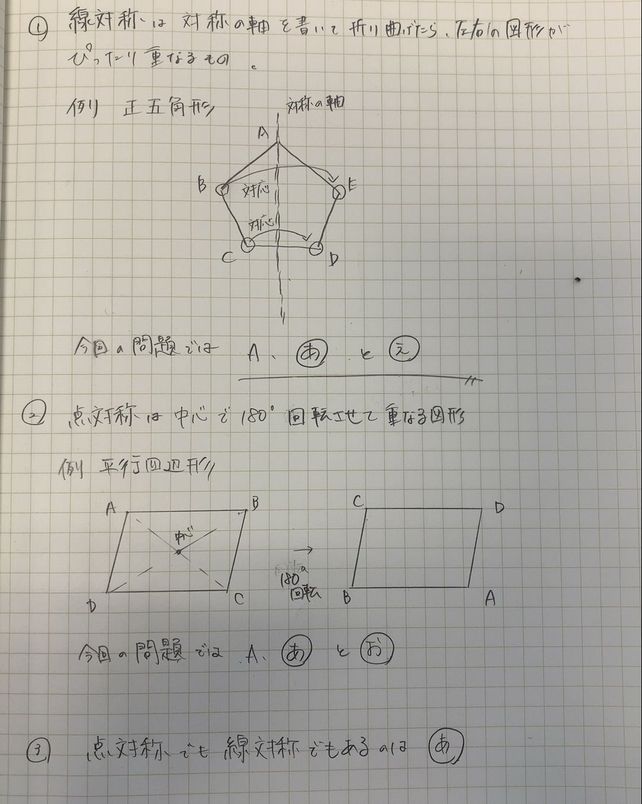 ① 線対称は 対称の軸を書いて折り曲げたら、左右の図形が
ぴったり重なるもの。
例) 正五角形
対称の軸
A
B
E
対応
対応
C
D
今回の問題では A、 あ と え
② 点対称は中心で180°回転させて重なる図形
例 平行四辺形
A
B
中心
D
C
→
180°
回転
C
D
B
A
今回の問題では A、 あ と お
③ 点対称でも線対称でもあるのは あ